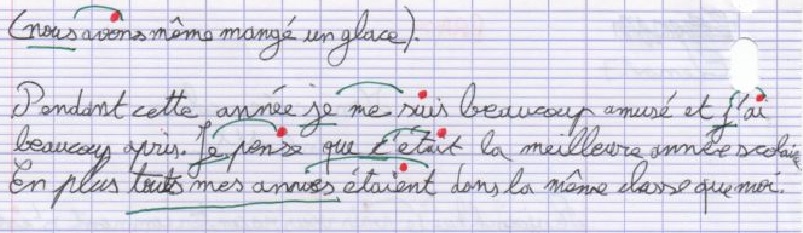 (nous avons même mangé un glace).
Pendant cette année je me suis beaucoup amusé et j'ai
beaucoup apris. Je pense que c'était la meilleure année scolaie
En plus touts mes annues étaient dans la même classe que moi.